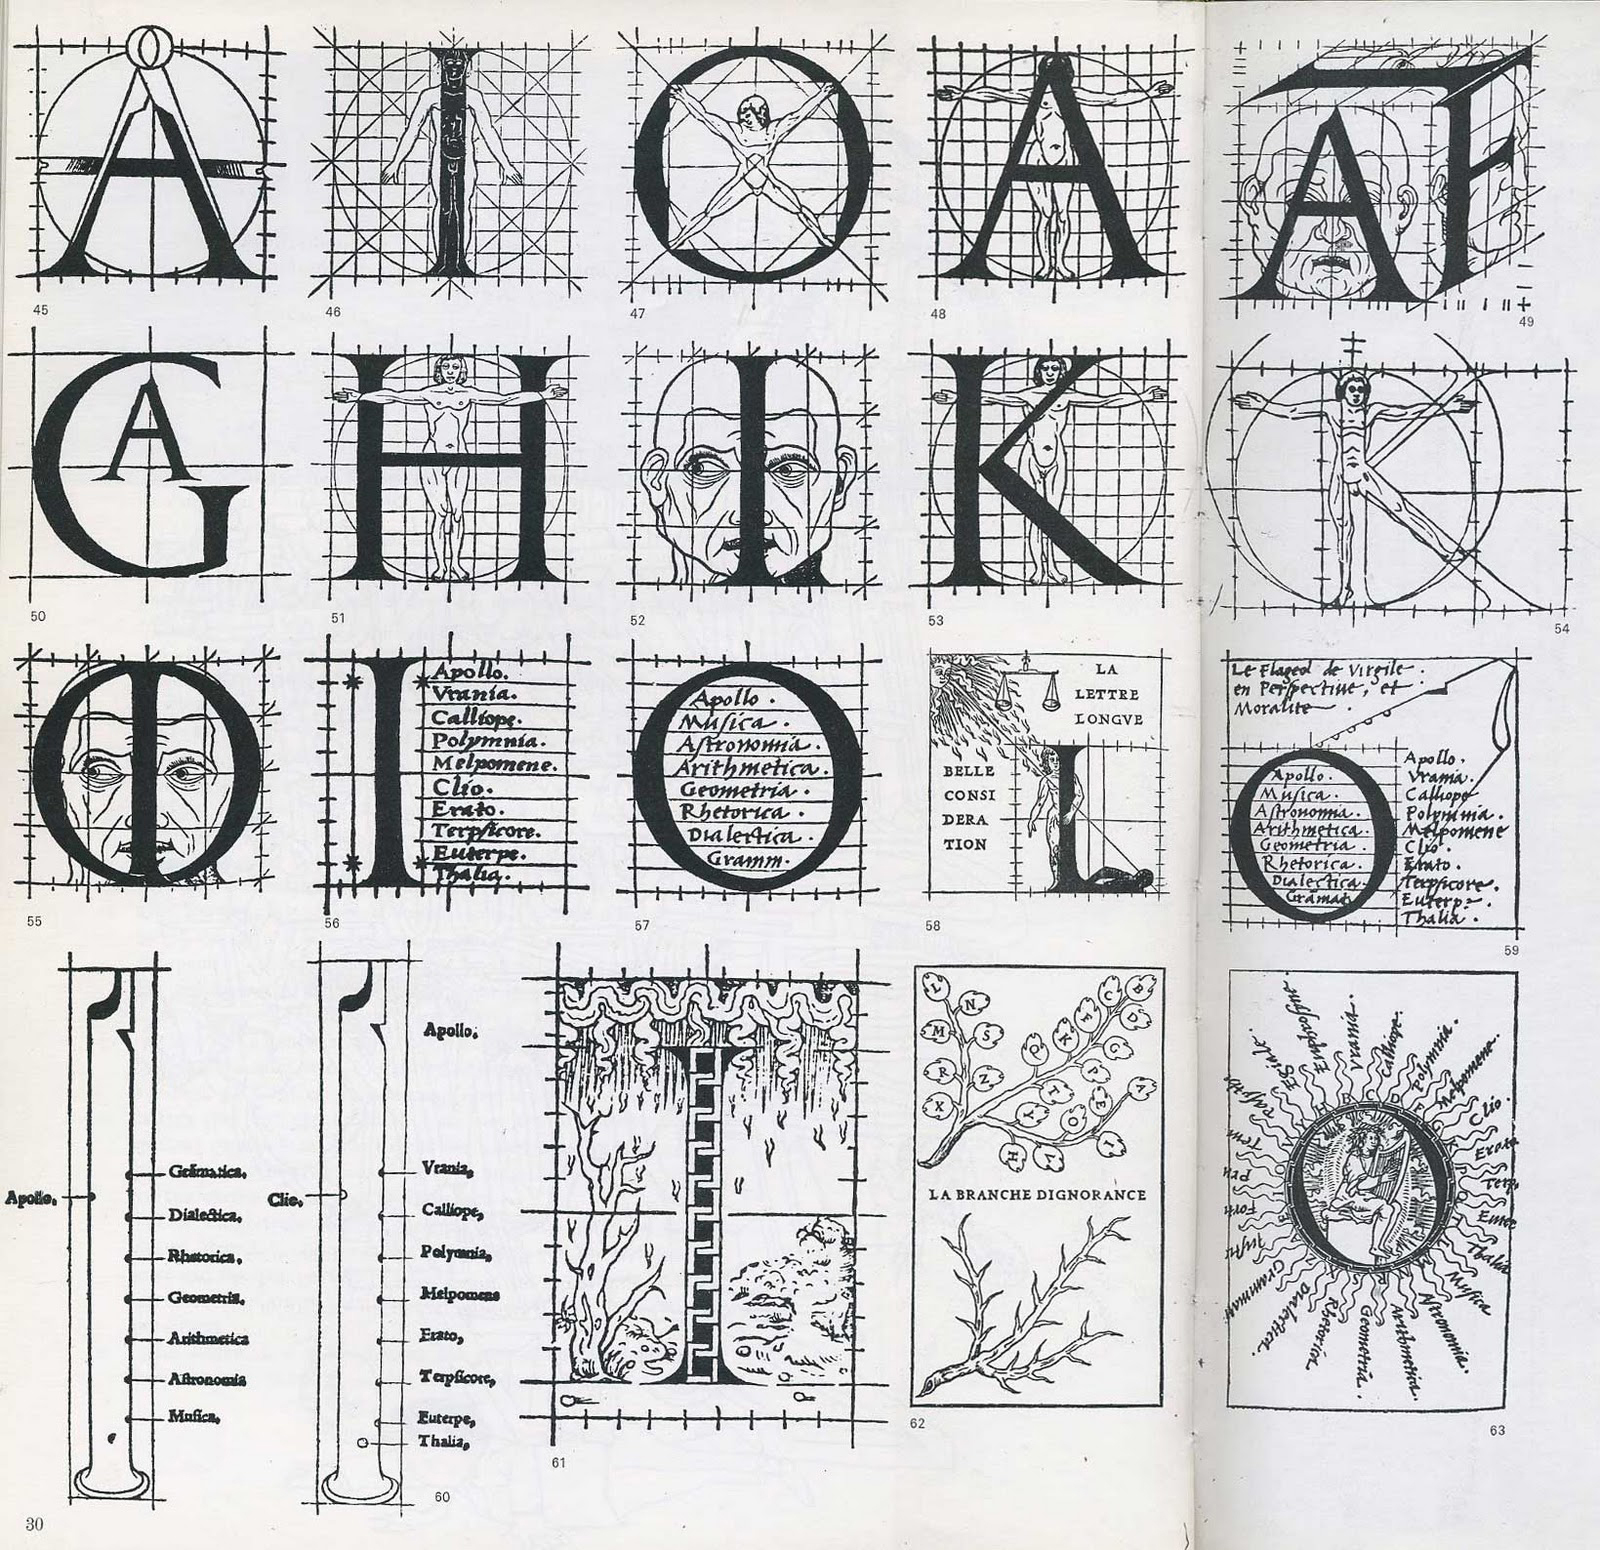 A
45
I
46
O
47
A
48
A F
49
G A
50
H
51
I
52
K
53
K
54
55
I
Apollo.
Vrania.
Calliope.
Polymnia.
Melpomene.
Clio.
Erato.
Terpsicore.
Euterpe.
Thalia.
56
O
Apollo.
Musica.
Astronomia.
Arithmetica.
Geometria.
Rhetorica.
Dialectica.
Gramm.
57
LA
LETTRE
LONGVE
BELLE
CONSI
DERA
TION
L
58
Le Flageol de Virgile
en Perspectiue, et
Moralite.
O
Apollo.
Musica.
Astronomia.
Arithmetica.
Geometria.
Rhetorica.
Dialectica.
Gramat
Apollo.
Vrania.
Calliope
Polymnia.
Melpomene
Clio.
Erato.
Terpsicore.
Euterp.
Thalia.
59
Apollo.
Grāmatica,
Dialectica,
Rhetorica,
Geometria,
Arithmetica
Astronomia
Musica,
Clio.
Apollo.
Vrania,
Calliope,
Polymnia,
Melpomene
Erato,
Terpsicore,
Euterpe,
Thalia,
60
I
61
L
N
M
S
R
Z
X
C
B
D
K
Q
G
T
P
E
A
Y
O
I
H
62
LA BRANCHE DIGNORANCE
O
Egiale.
Euphrosyne
Vrania.
Calliope.
Polymnia.
Melpomene.
Clio.
Erato
Terp
Euter
Thalia
Musica
Astronomia.
Arithmetica.
Geometria.
Rhetorica.
Dialectica.
Grammati
63
30